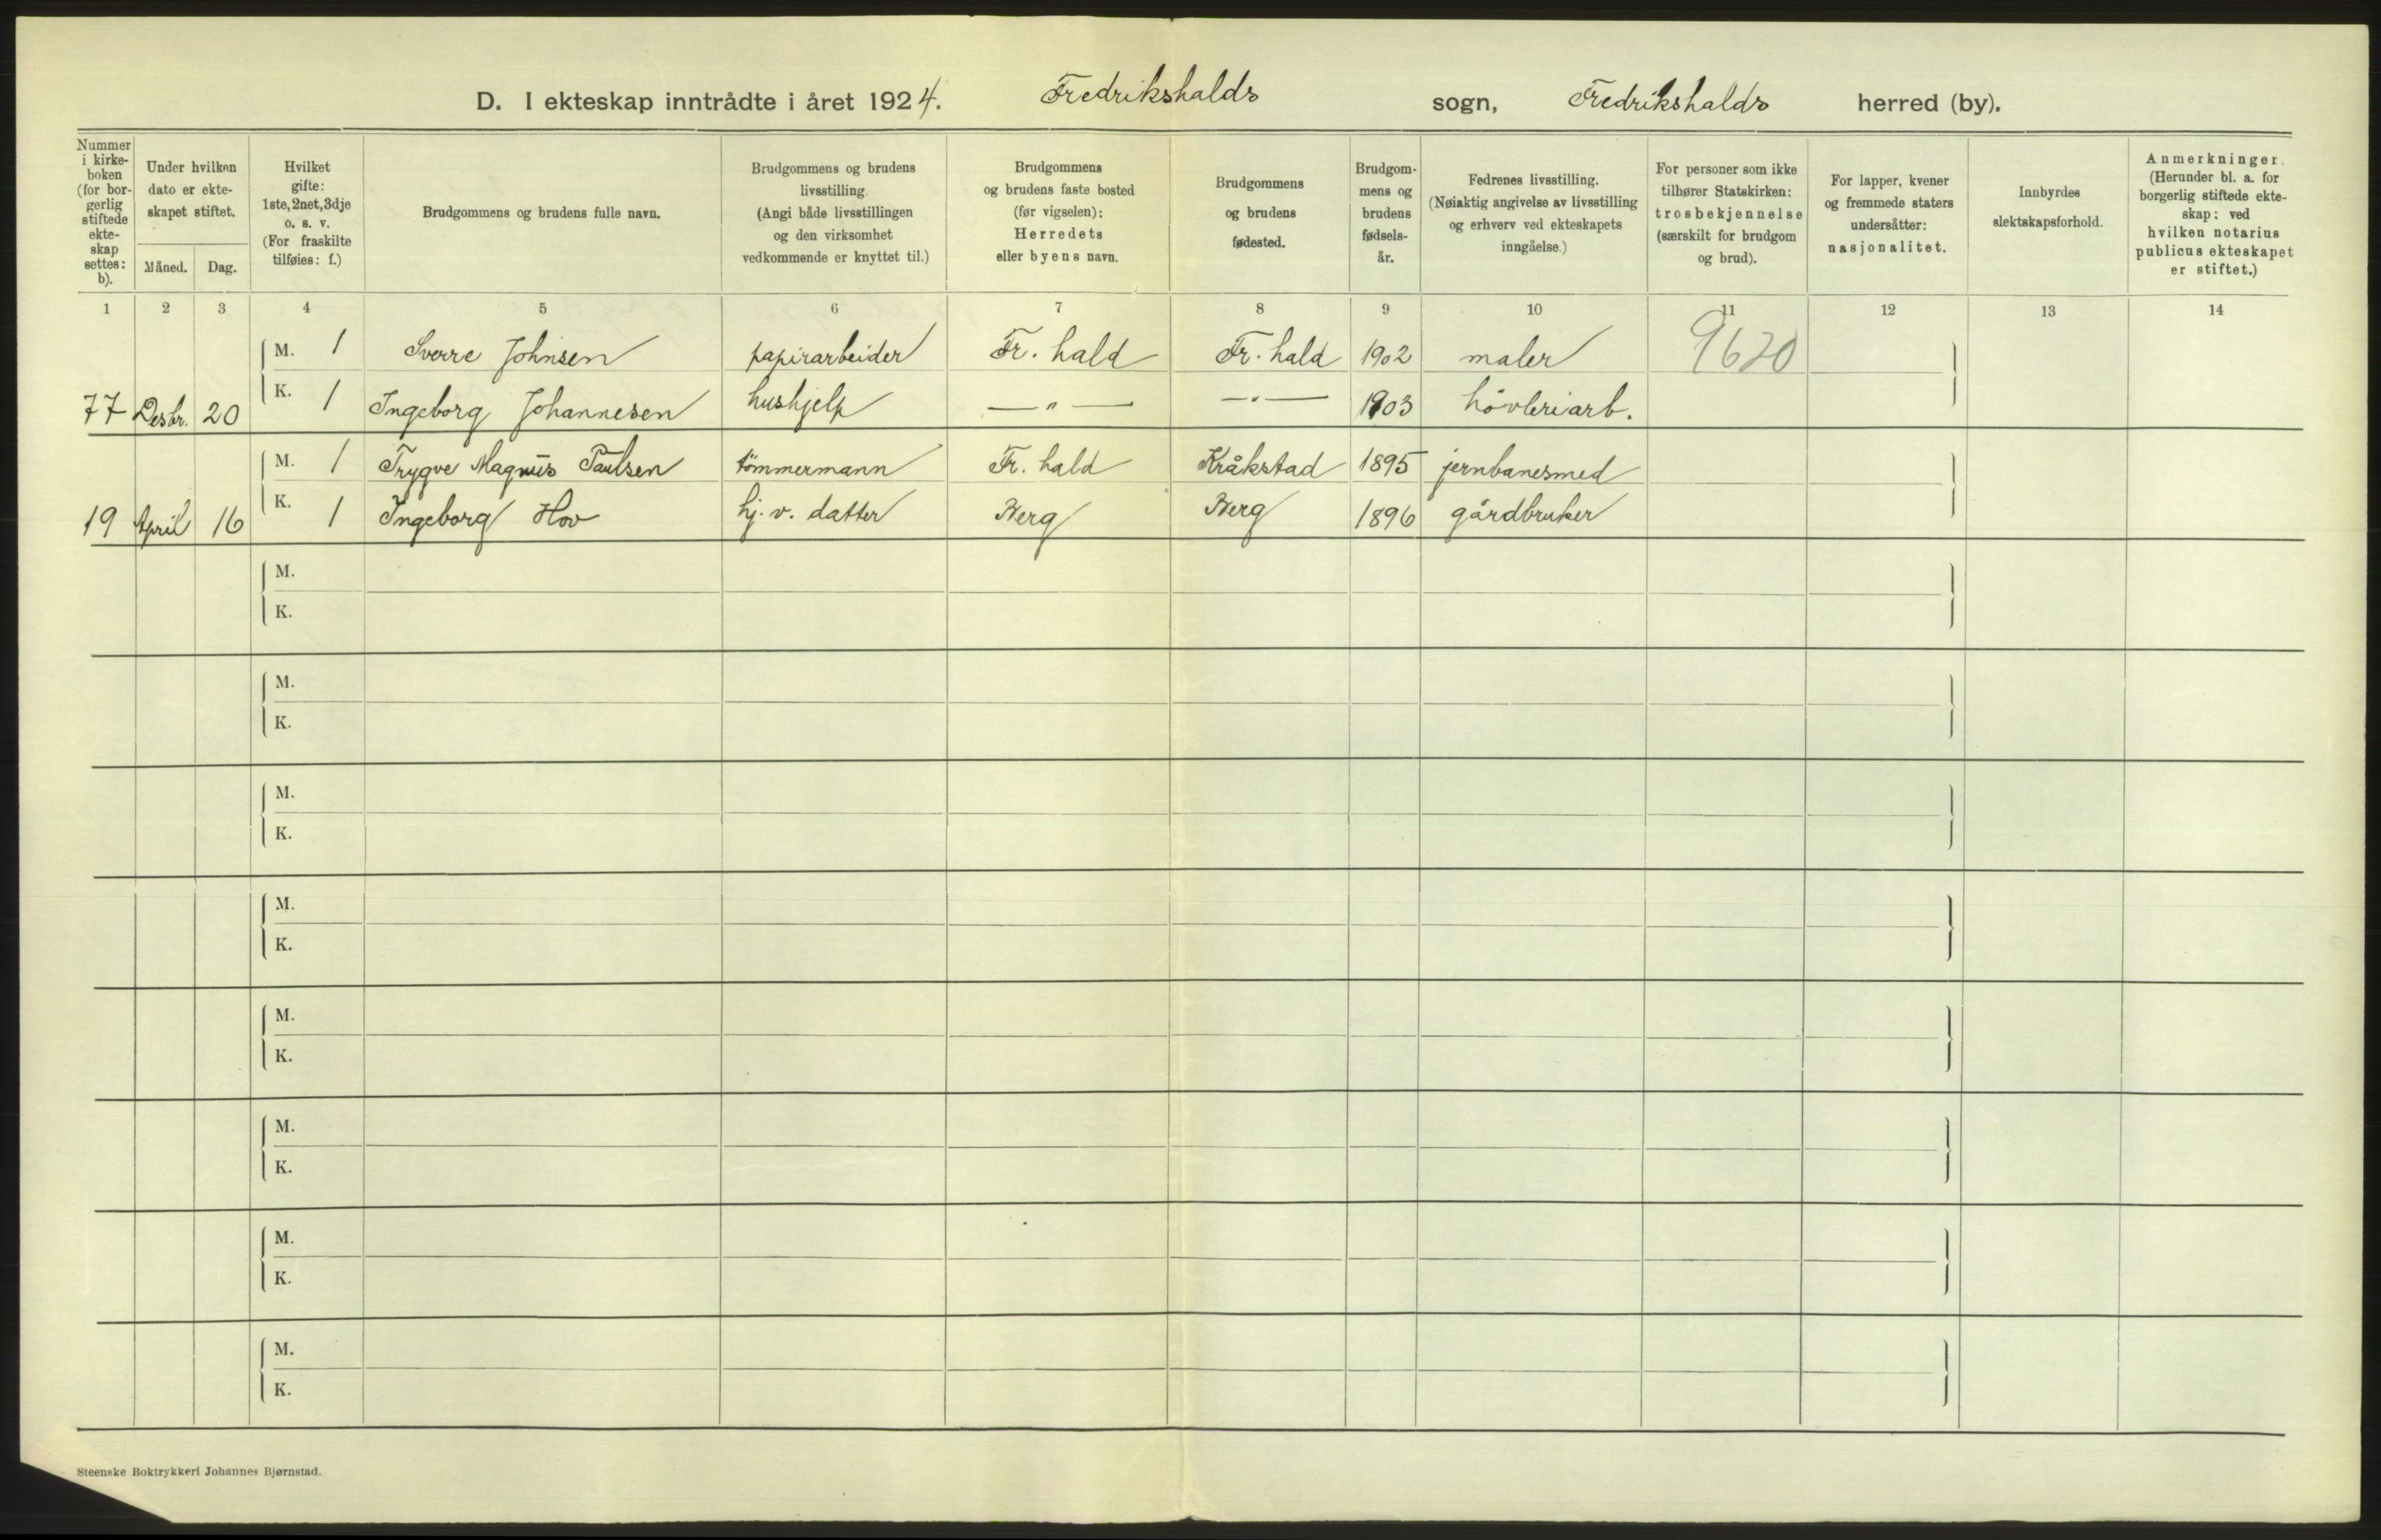 D. I ekteskap inntrådte i året 1924. Fredrikshalds sogn, Fredrikshalds herred (by).
Nummer i kirke-boken (for bor-gerlig stiftede ekte-skap settes: b).
Under hvilken dato er ekte-skapet stiftet.
Måned. Dag.
Hvilket gifte: 1ste, 2net, 3dje o. s. v. (For fraskilte tilføies: f.)
Brudgommens og brudens fulle navn.
Brudgommens og brudens livsstilling. (Angi både livsstillingen og den virksomhet vedkommende er knyttet til.)
Brudgommens og brudens faste bosted (før vigselen): Herredets eller byens navn.
Brudgommens og brudens fødested.
Brudgom-mens og brudens fødsels-år.
Fedrenes livsstilling. (Nøiaktig angivelse av livsstilling og erhverv ved ekteskapets inngåelse.)
For personer som ikke tilhører Statskirken: trosbekjennelse (særskilt for brudgom og brud).
For lapper, kvener og fremmede staters undersåtter: nasjonalitet.
Innbyrdes slektskapsforhold.
Anmerkninger. (Herunder bl. a. for borgerlig stiftede ekte-skap: ved hvilken notarius publicus ekteskapet er stiftet.)
1 2 3 4 5 6 7 8 9 10 11 12 13 14
M. 1 Sverre Johnsen papirarbeider Fr. hald Fr. hald 1902 maler 9620
77 Desbr. 20 K. 1 Ingeborg Johannesen hushjelp — " — — " — 1903 hövleriarb.
M. 1 Trygve Magnus Paulsen tömmermann Fr. hald Kråkstad 1895 jernbanesmed
19 April 16 K. 1 Ingeborg Hov hj. v. datter Berg Berg 1896 gårdbruker
M.
K.
M.
K.
M.
K.
M.
K.
M.
K.
M.
K.
M.
K.
M.
K.
Steenske Boktrykkeri Johannes Bjørnstad.